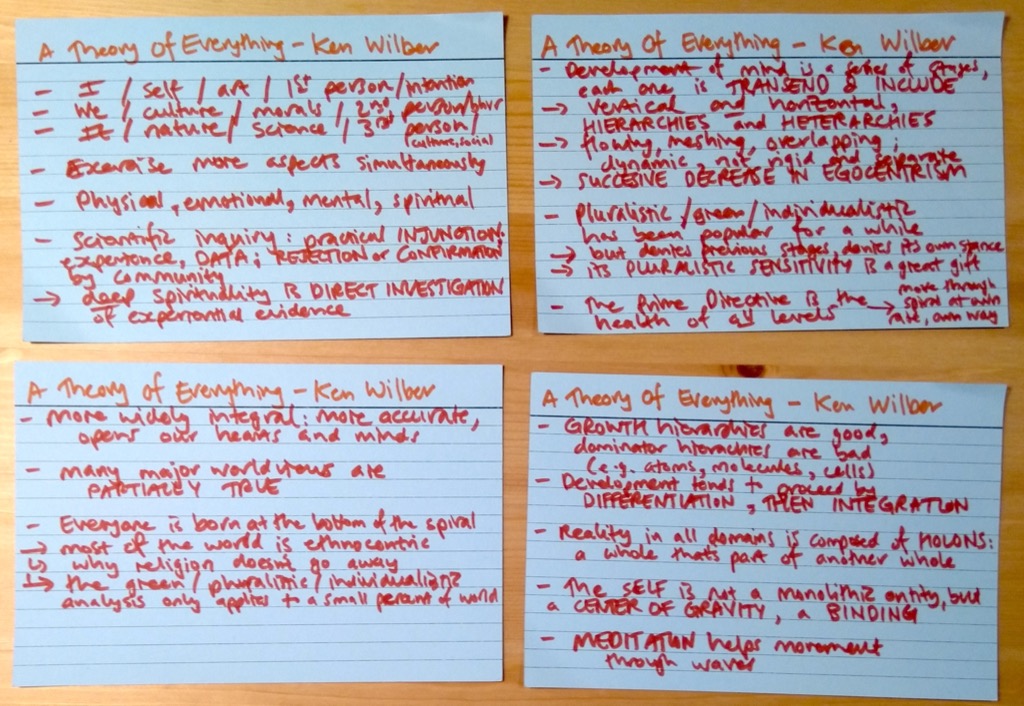 A Theory Of Everything - Ken Wilber
- I / self / art / 1st person/intention
- We / culture / morals / 2nd person/bhvr
- It / nature / science / 3rd person/
culture, social
- Exercise more aspects simultaneously
- Physical, emotional, mental, spiritual
- Scientific inquiry: practical INJUNCTION.
experience, DATA; REJECTION or CONFIRMATION
by community
→ deep spirituality is DIRECT INVESTIGATION
of experiential evidence
A Theory Of Everything - Ken Wilber
- Development of mind is a series of stages,
each one is TRANSEND & INCLUDE
→ vertical and horizontal,
HIERARCHIES and HETERARCHIES
→ flowing, meshing, overlapping;
dynamic, not rigid and separate
→ SUCCESIVE DECREASE IN EGOCENTRISM
- Pluralistic/green/individualistic
has been popular for a while
→ but denies previous stages, denies its own stance
→ its PLURALISTIC SENSITIVITY is a great gift
- The Prime Directive is the
health of all levels
→ move through
spiral at own
rate, own way
A Theory of Everything - Ken Wilber
- More widely integral: more accurate,
opens our hearts and minds
- many major worldviews are
PARTIALLY TRUE
- Everyone is born at the bottom of the spiral
→ most of the world is ethnocentric
↳ why religion doesn't go away
→ the green/pluralistic/individualistic
analysis only applies to a small percent of world
A Theory of Everything - Ken Wilber
- GROWTH hierarchies are good,
dominator hierachies are bad
(e.g. atoms, molecules, cells)
- Development tends to proceed by
DIFFERENTIATION, THEN INTEGRATION
- Reality in all domains is composed of HOLONS:
a whole thats part of another whole
- The SELF is not a monolithic entity, but
a CENTER OF GRAVITY, a BINDING
- MEDITATION helps movement
through waves